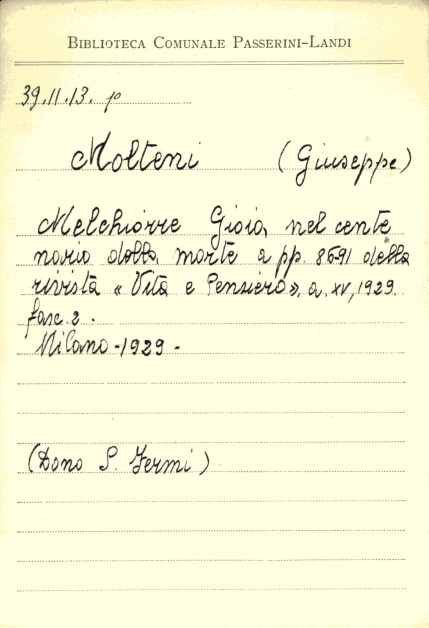 BIBLIOTECA COMUNALE PASSERINI-LANDI
39.11.13. p
Molteni (Giuseppe)
Melchiorre Gioia, nel cente
nario dolla morte a pp. 86-91 della
rivista « Vita e Pensiero », a. XV, 1929.
fasc. 2.
Milano - 1929 -
(Dono S. Fermi)